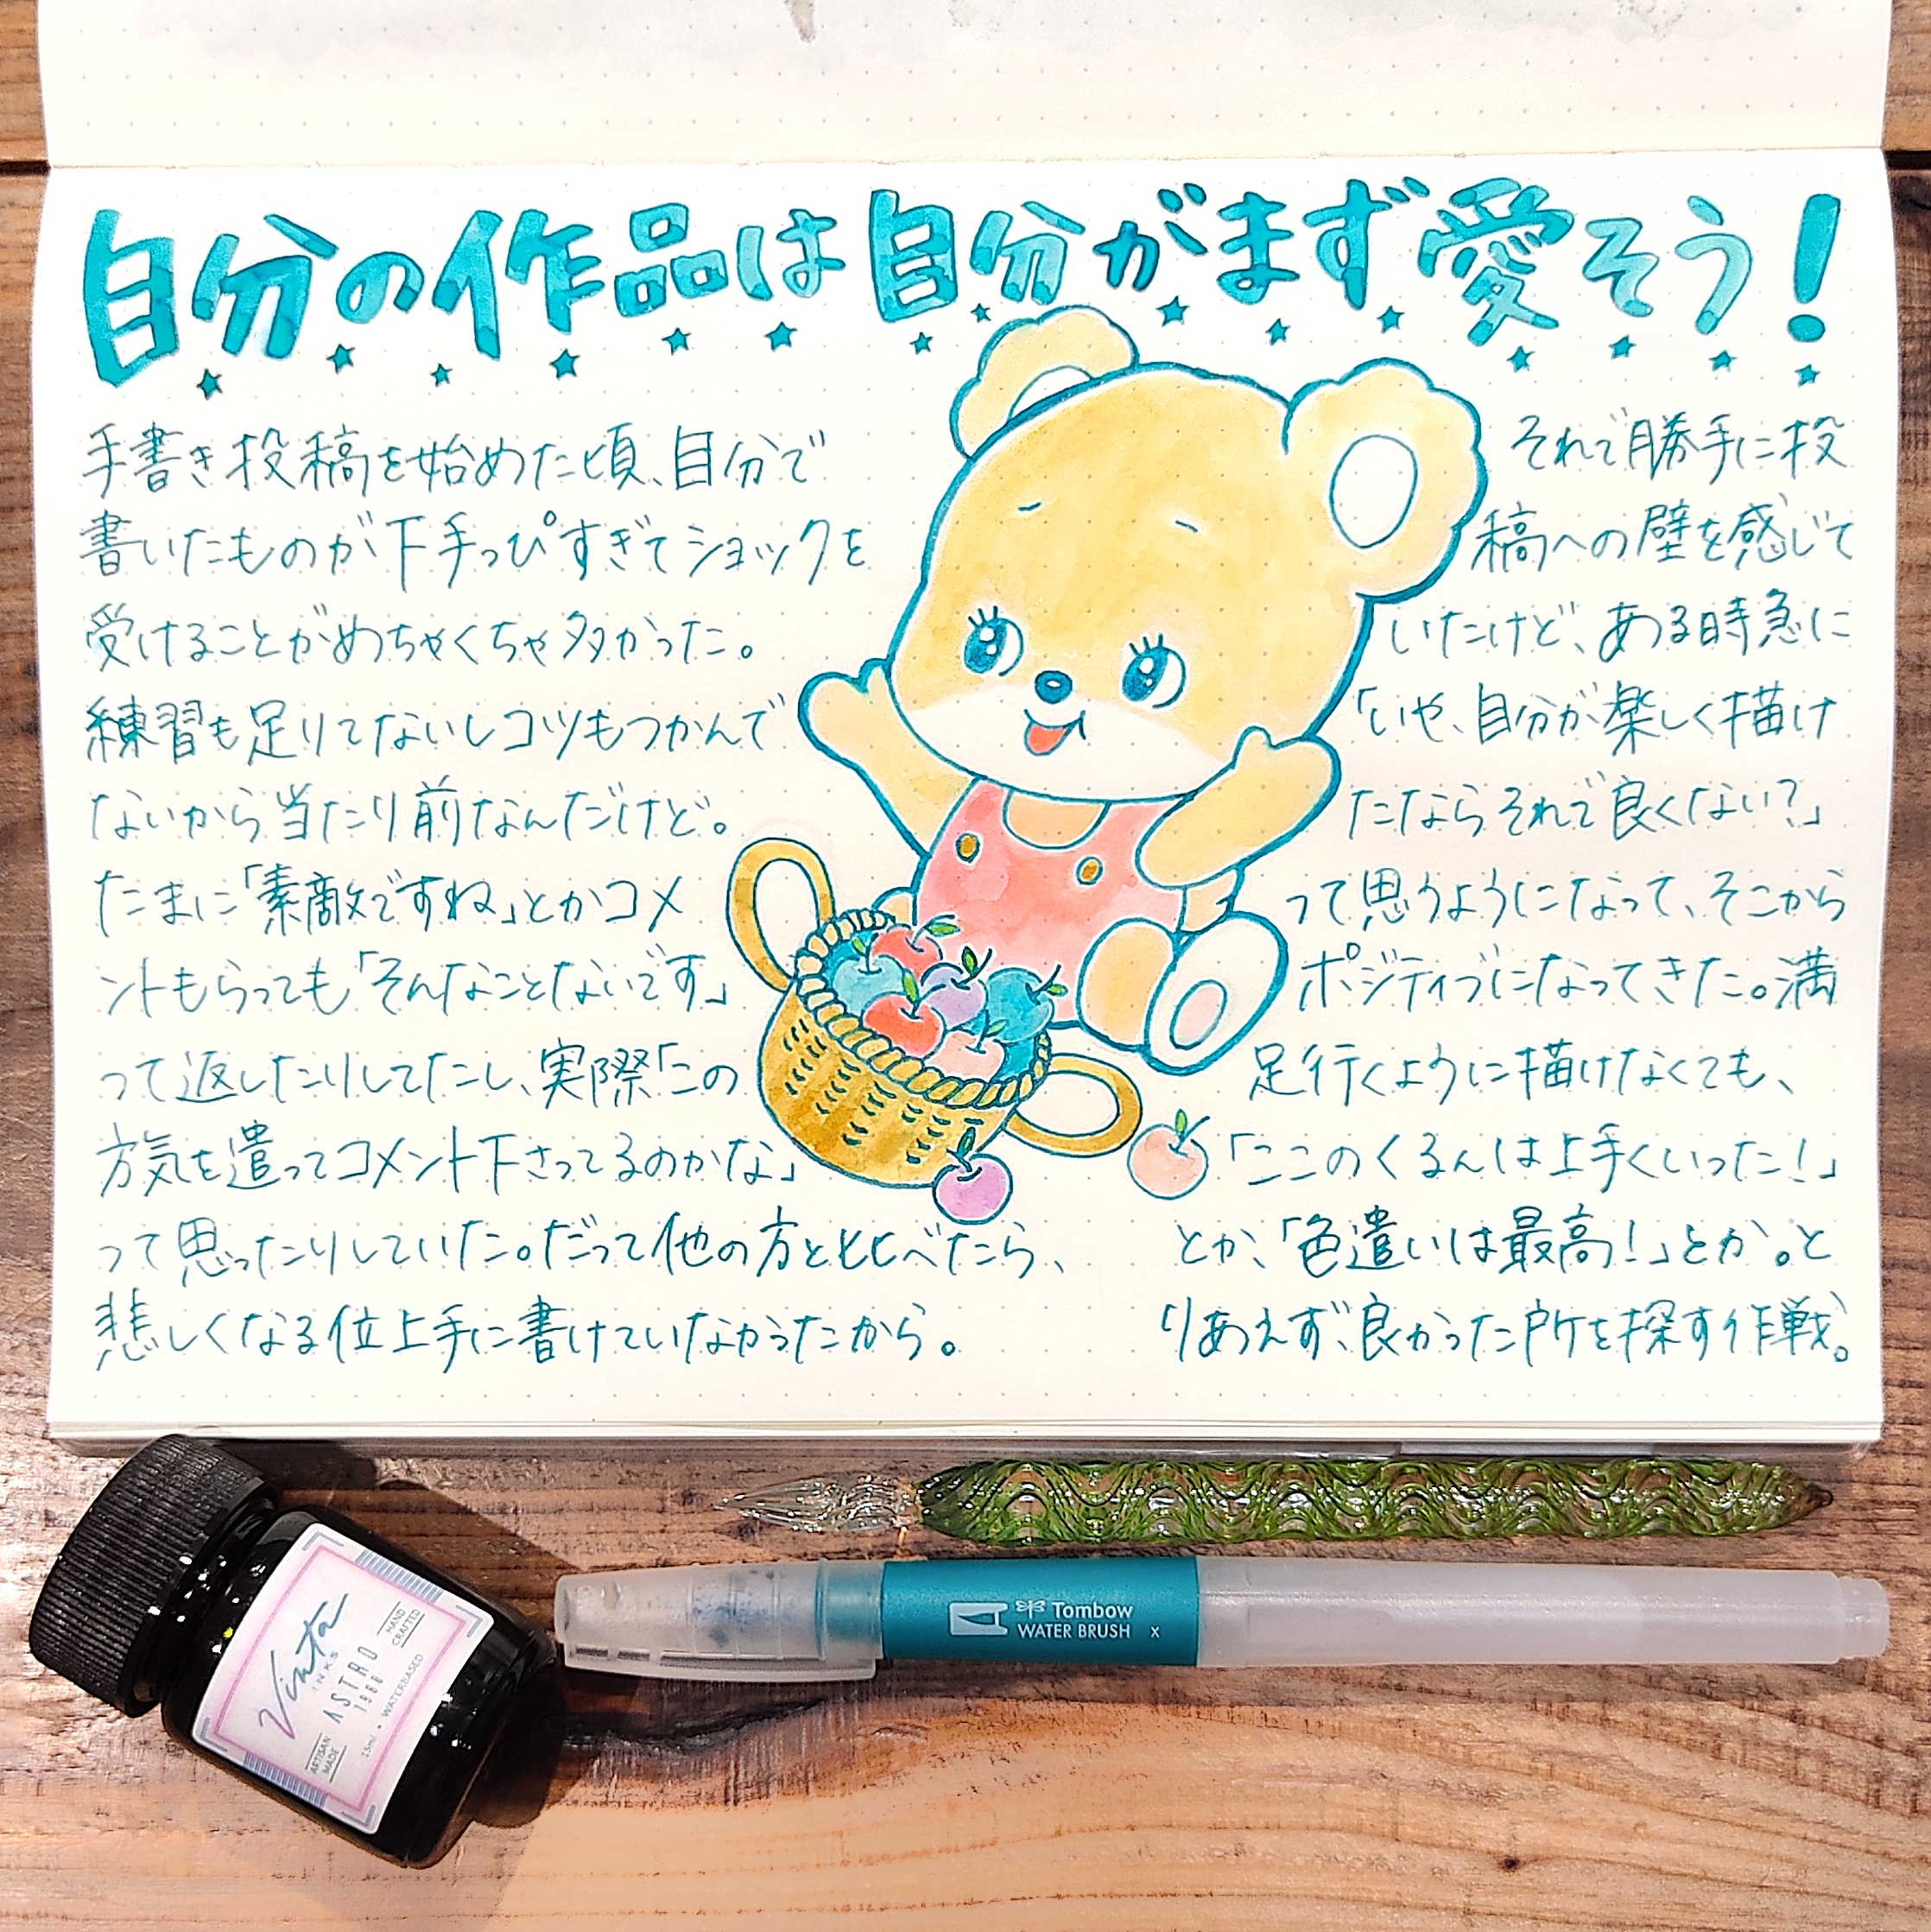 自分の作品は自分がまず愛そう！
手書き投稿を始めた頃、自分で
書いたものが下手っぴすぎてショックを
受けることがめちゃくちゃ多かった。
練習も足りてないしコツもつかんで
ないから当たり前なんだけど。
たまに「素敵ですね」とかコメ
ントもらっても「そんなことないです」
って返したりしてたし、実際「この
方気を遣ってコメント下さってるのかな」
って思ったりしていた。だって他の方と比べたら、
悲しくなる位上手に書けていなかったから。
それで勝手に投
稿への壁を感じて
いたけど、ある時急に
「いや、自分が楽しく描け
たならそれで良くない？」
って思うようになって、そこから
ポジティブになってきた。満
足行くように描けなくても、
「ここのくるんは上手くいった！」
とか、「色遣いは最高！」とか。と
りあえず、良かった所を探す作戦。
Vinta
INKS
ASTRO
1988
HAND
CRAFTED
ARTISAN
MADE
15ml • WATERBASED
Tombow
WATER BRUSH x